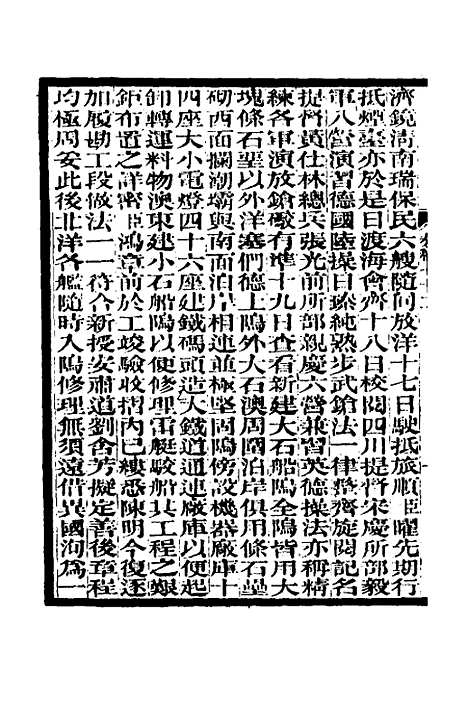 濟鏡清南瑞保民六艘隨同放洋十七日駛抵旅順臣曜先期行
抵煙臺亦於是日渡海會齊十八日校閱四川提督宋慶所部毅
軍八營演習德國陸操日臻純熟步武鎗法一律整齊旋閱記名
提督黃仕林總兵張光前所部親慶六營兼習英德操法亦稱精
練各軍演放鎗礮有準十九日查看新建大石船隖全隖皆用大
塊條石壘以外洋塞們德土隖外大石澳周圍泊岸俱用條石壘
砌西面攔潮壩與南面泊岸相連並極堅固隖傍設機器廠庫十
四座大小電燈四十六座建鐵碼頭造大鐵道通連廠庫以便起
卸轉運料物澳東建小石船隖以便修理雷艇駮船其工程之艱
鉅布置之詳密臣鴻章前於工竣驗收摺內已縷悉陳明今復逐
加履勘工段做法一一符合新授安肅道劉含芳擬定善後章程
均極周妥此後北洋各艦隨時入隖修理無須遠借異國洵為一